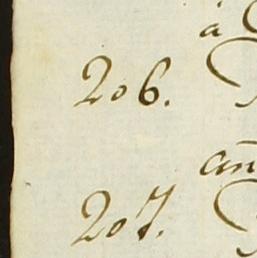 à
206.
an
207.